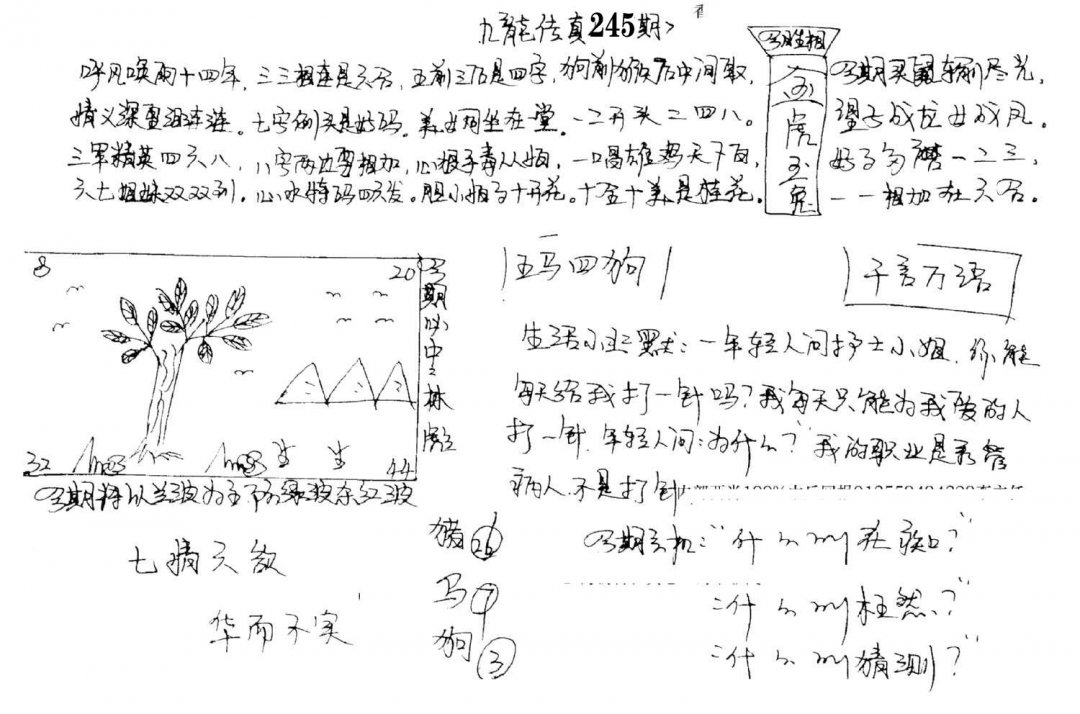 九龍传真245期
呼风唤雨十四年，三三相连是六合，五前三后是四字，狗前猴后中间取，
情义深重泪连连。七字倒头是好码。美女同坐在堂。一二开头二四八。
三军精英四六八，八字两边要相加，心狠手毒人如，一唱雄鸡天下白，
六七姐妹双双到，心水特码四六发。胆小怕子十开花。十全十美是桂花。
另期买鼠输尽光，
望子成龙女成凤。
好子一二三，
一一相加在六合。
虎
玉
兔
8
20
32
44
另期必中
另期特以兰波为主防绿波杂红波
五马四狗
千言万语
生活小幽默：一年轻人问护士小姐，你能
每天给我打一针吗？我每天只能为我爱的人
打一针，年轻人问：为什么？我的职业是看管
病人，不是打针
七情六欲
华而不实
猪26
马7
狗3
另期玄机：什么叫？
二什么叫枉然？
三什么叫猜测？